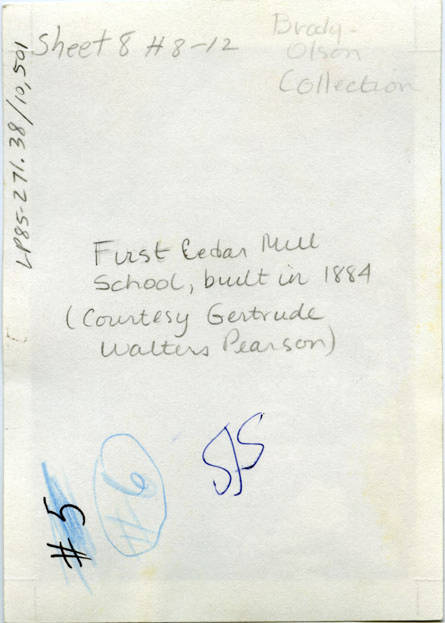 Sheet 8 #8-12
Brody-
Olson
Collection
LP85-271.38/10,501
First Cedar Mill
School, built in 1884
(Courtesy Gertrude
Walters Pearson)
SJS
#6
#5